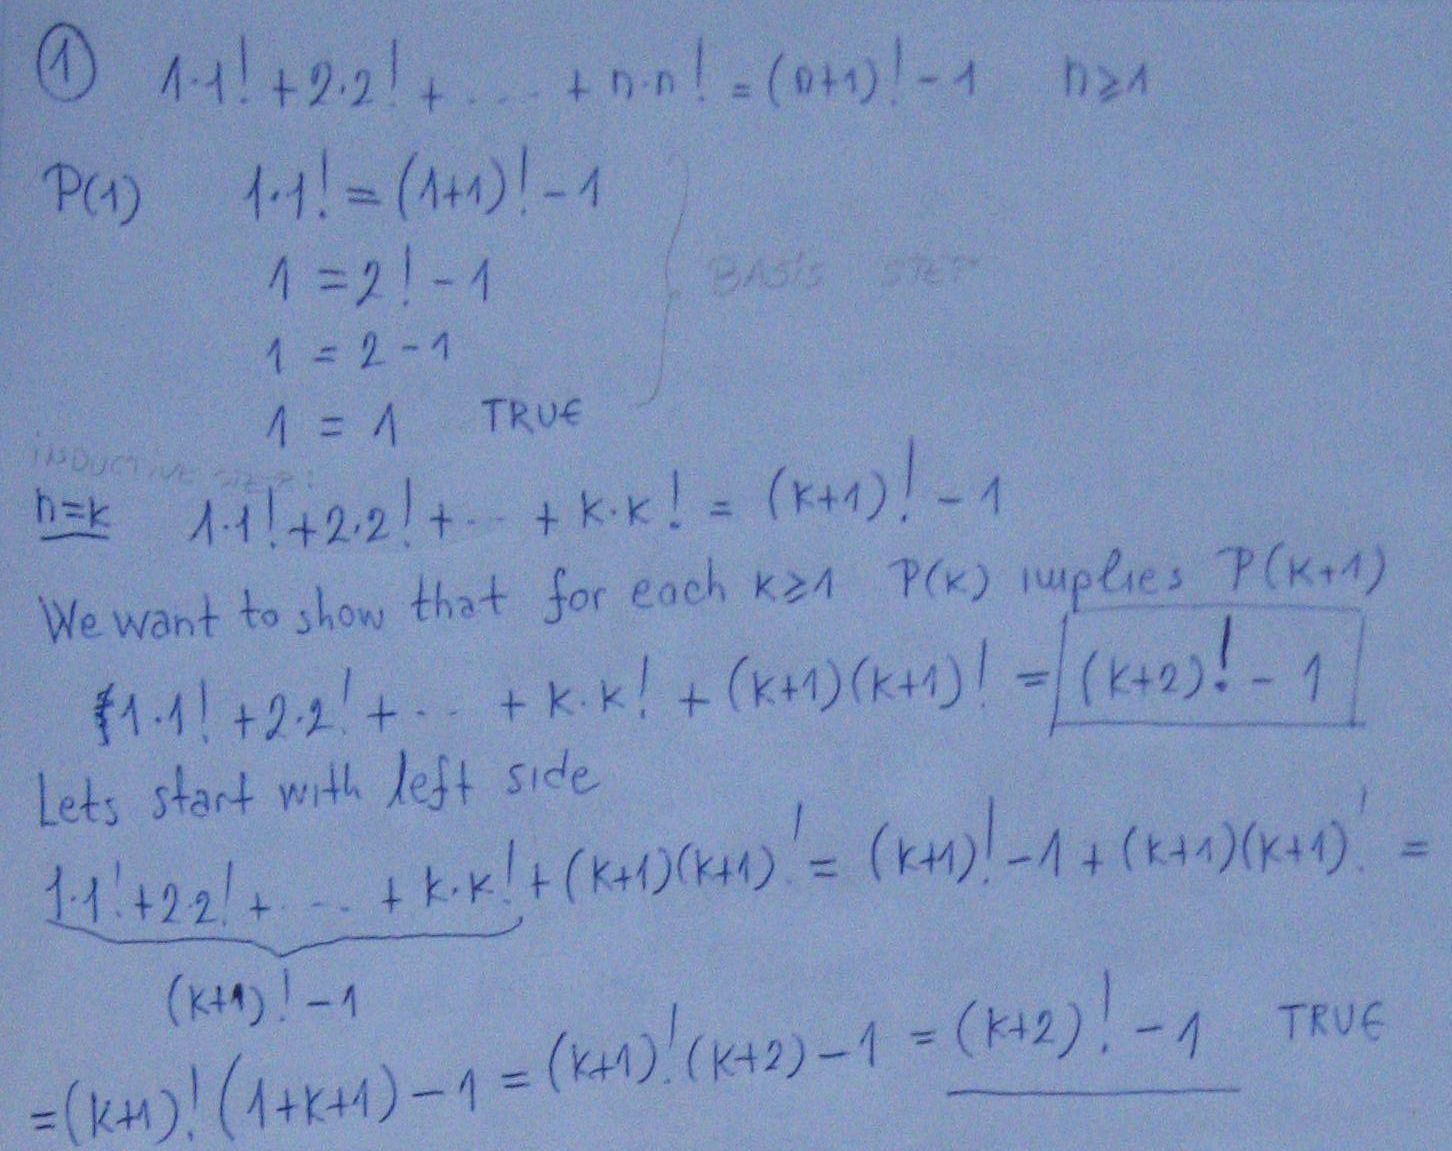 ① 1·1! + 2·2! + .... + n·n! = (n+1)! - 1 n≥1
P(1) 1·1! = (1+1)! - 1
1 = 2! - 1
BASIS STEP
1 = 2 - 1
1 = 1 TRUE
INDUCTIVE STEP:
n=k 1·1! + 2·2! + ... + k·k! = (k+1)! - 1
We want to show that for each k≥1 P(k) implies P(k+1)
1·1! + 2·2! + ... + k·k! + (k+1)(k+1)! = (k+2)! - 1
Lets start with left side
1·1! + 2·2! + .... + k·k! + (k+1)(k+1)! = (k+1)! - 1 + (k+1)(k+1)! =
(k+1)! - 1
= (k+1)! (1+k+1) - 1 = (k+1)! (k+2) - 1 = (k+2)! - 1 TRUE